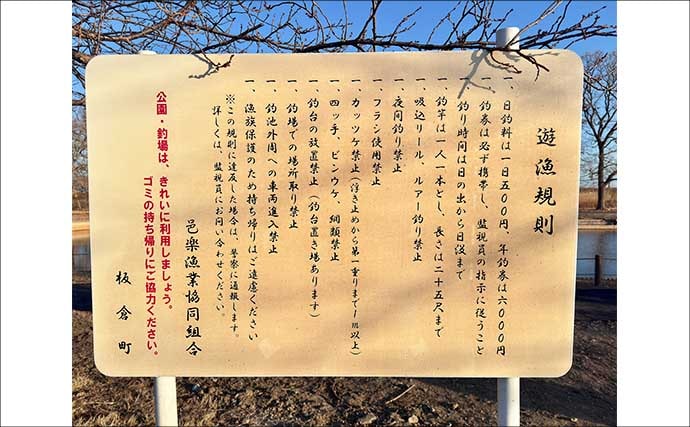 遊漁規則
一、日釣料は一日五００円、年釣券は六０００円
一、釣券は必ず携帯し、監視員の指示に従うこと
一、釣り時間は日の出から日没まで
一、釣竿は一人一本とし、長さは二十五尺まで
一、吸込リール、ルアー釣り禁止
一、夜間釣り禁止
一、フラシ使用禁止
一、カッツケ禁止（浮き止めから第一重りまで１ｍ以上）
一、四ッ手、ビンウケ、網類禁止
一、釣台の放置禁止（釣台置き場あります）
一、釣場での場所取り禁止
一、釣池外周への車両進入禁止
一、漁族保護のため持ち帰りはご遠慮ください
※この規則に違反した場合は、警察に通報します。
詳しくは、監視員にお問い合わせください。
邑楽漁業協同組合
公園・釣場は、きれいに利用しましょう。
ゴミの持ち帰りにご協力ください。
板倉町